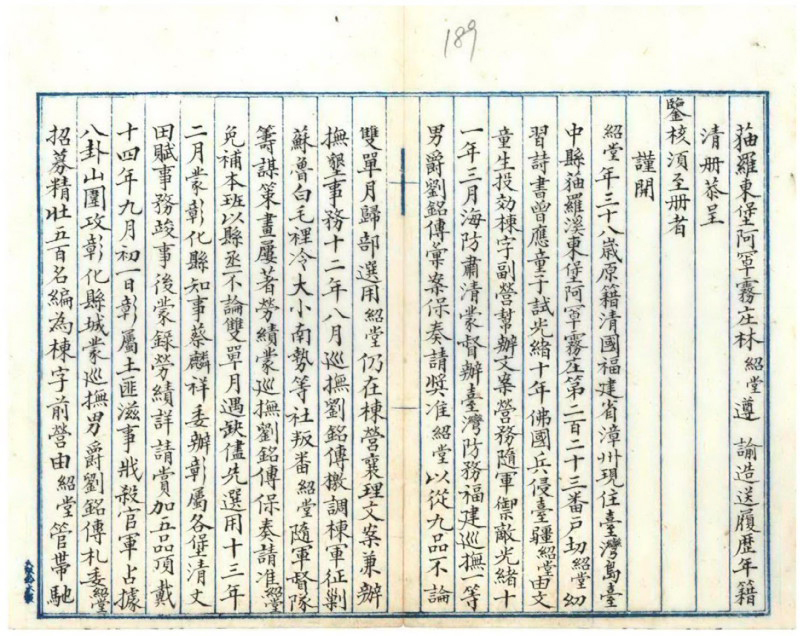 189
猫羅東堡阿罩霧庄林紹堂遵 諭造送履歷年籍
清册恭呈
鑒核須至册者
謹開
紹堂年三十八歲原籍清國福建省漳州現住臺灣島臺
中縣猫羅溪東堡阿罩霧庄第二百二十三番戶切紹堂幼
習詩書曾應童子試光緒十年佛國兵侵臺疆紹堂由文
童生投効棟字副營幫辦文案營務隨軍禦敵光緒十
一年三月海防肅清蒙督辦臺灣防務福建巡撫一等
男爵劉銘傳彙案保奏請奨准紹堂以從九品不論
雙單月歸部選用紹堂仍在棟營襄理文案兼辦
撫墾事務十二年八月巡撫劉銘傳檄調棟軍征剿
蘇魯白毛裡冷大小南勢等社叛番紹堂隨軍督隊
籌謀策畫屢著勞績蒙巡撫劉銘傳保奏請准紹堂
免補本班以縣丞不論雙單月遇缺儘先選用十三年
二月蒙彰化縣知事蔡麟祥委辦彰屬各堡清丈
田賦事務竣事後蒙錄勞績詳請賞加五品頂戴
十四年九月初一日彰屬土匪滋事戕殺官軍占據
八卦山圍攻彰化縣城蒙巡撫男爵劉銘傳札委紹堂
招募精壯五百名編為棟字前營由紹堂管帶馳